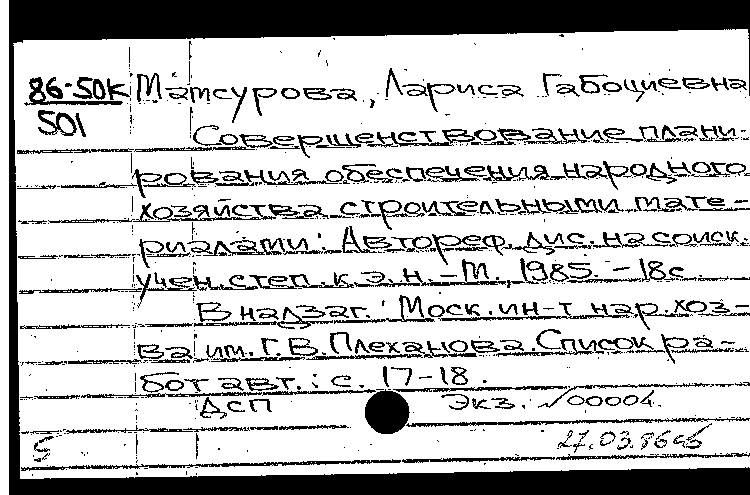 86-50К Матсурова, Лариса Габоциевна
501 Совершенствование плани-
рования обеспечения народного
хозяйства строительными мате-
риалами: Автореф. дис. на соиск.
учен. степ. к.э.н. - М., 1985. - 18 с.
В надзаг.: Моск. ин-т нар. хоз-
ва им. Г. В. Плеханова. Список ра-
бот авт.: с. 17-18.
ДСП Экз. №00004.
5 27.03.86сб